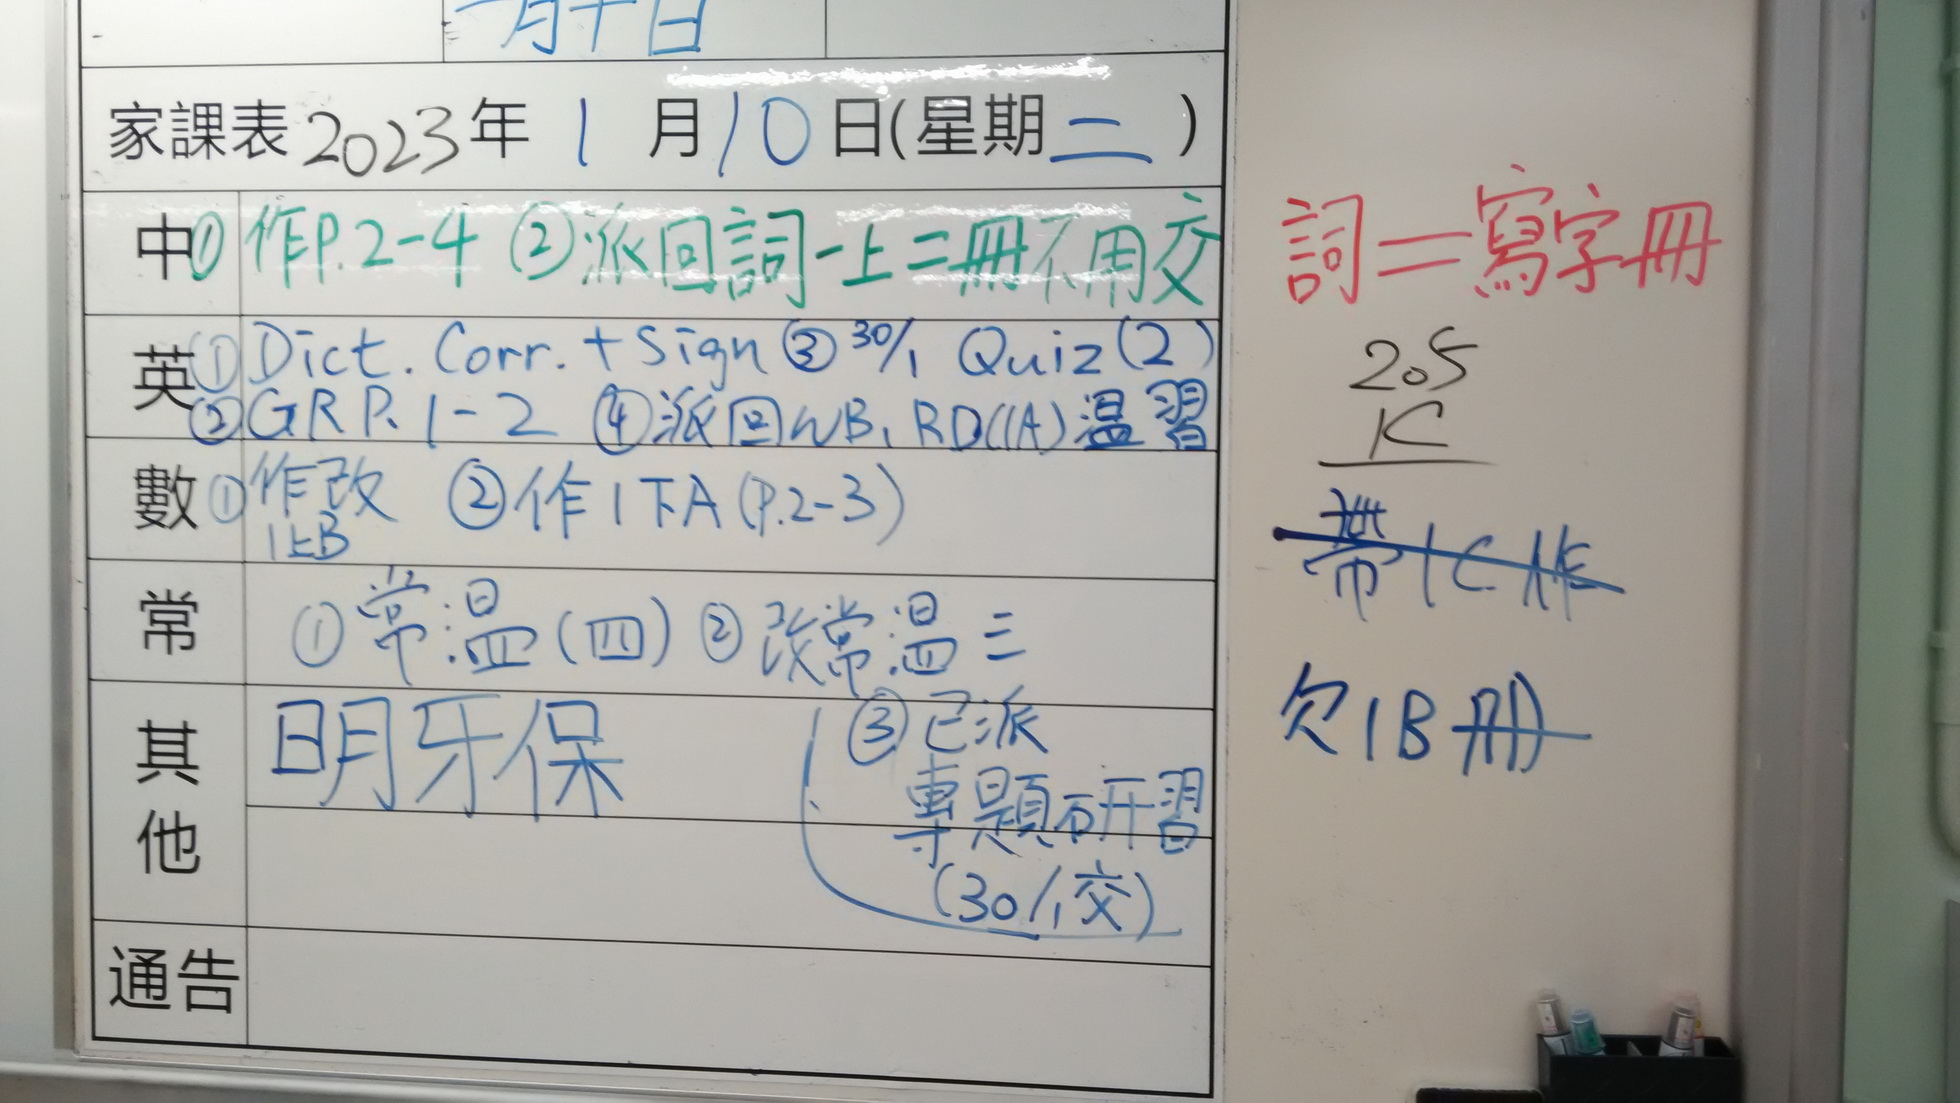 一月十日
家課表2023年 1 月10日(星期二)
中① 作P.2-4 ②派回詞一上二冊不用交
英① Dict. Corr. + Sign ③ 30/1 Quiz(2)
② GR P. 1-2 ④派回WB, RD(1A)溫習
數① 作改 ②作1下A(P.2-3)
1上B
常 ①常溫(四) ②改常溫三
其他 明牙保 ③已派
專題研習
(30/1交)
通告
詞=寫字冊
205
K
帶1C作
欠1B冊